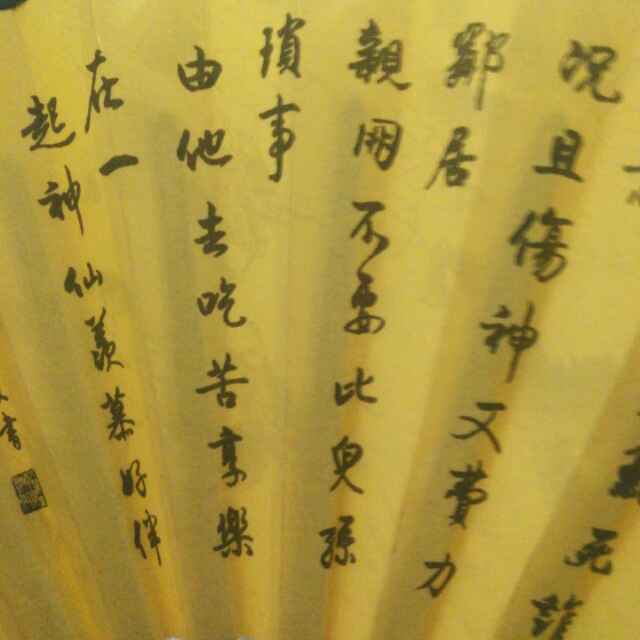 死誰
況且傷神又費力
鄰居
親朋不要比兒孫
瑣事
由他去吃苦享樂
在一
起神仙羨慕好伴